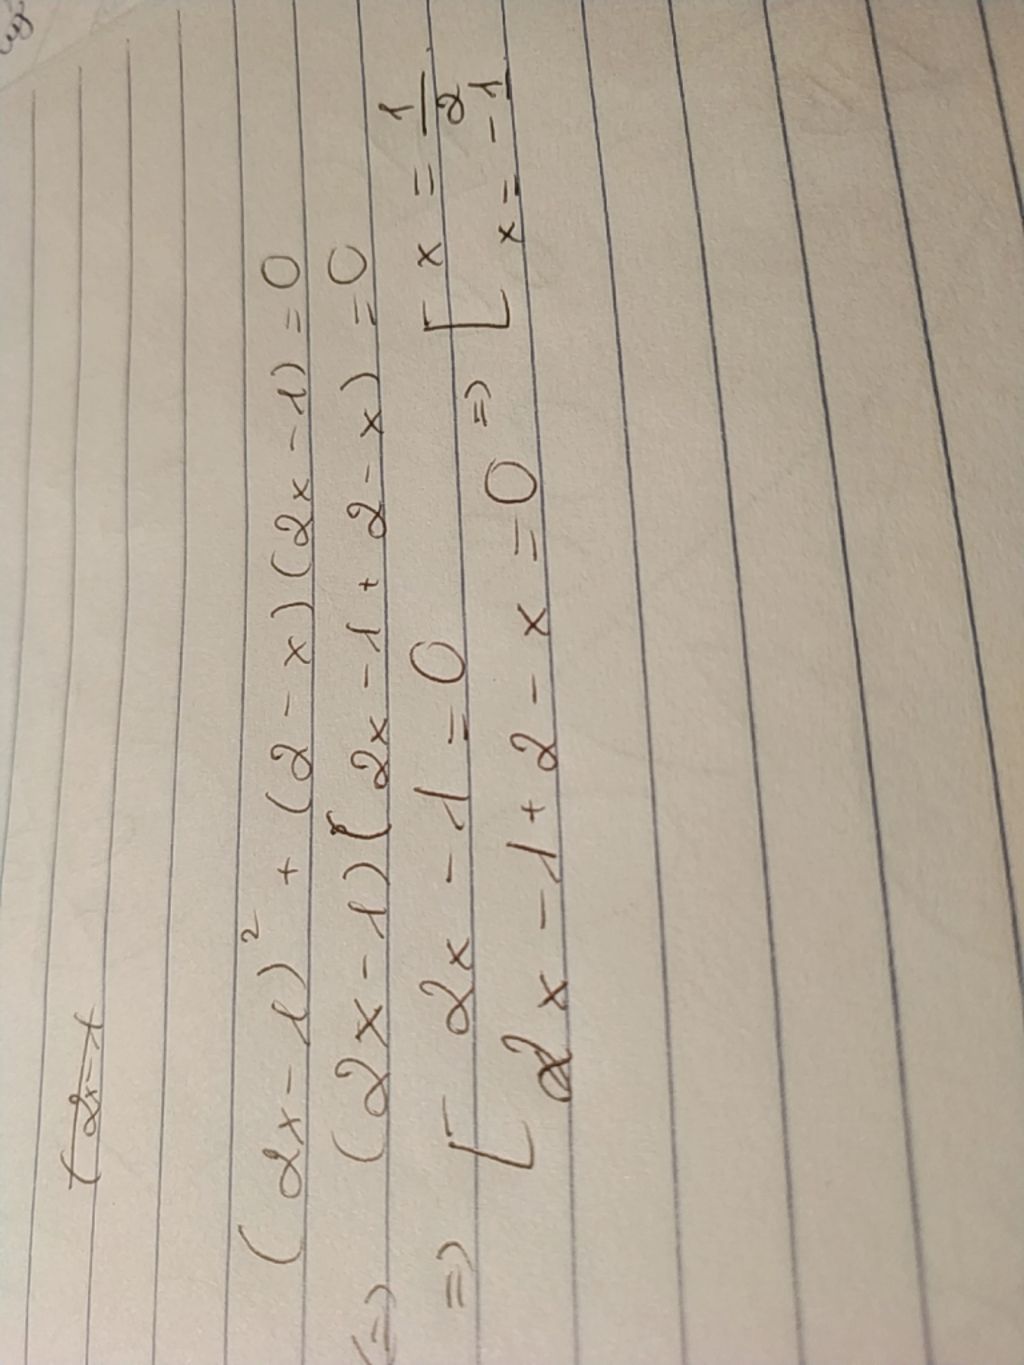 (2x-1
(2x-1)² + (2-x)(2x-1)=0
(=) (2x-1)(2x-1+2-x)=0
=) [ 2x-1=0 =) [ x = 1/2
2x-1+2-x=0 x=-1